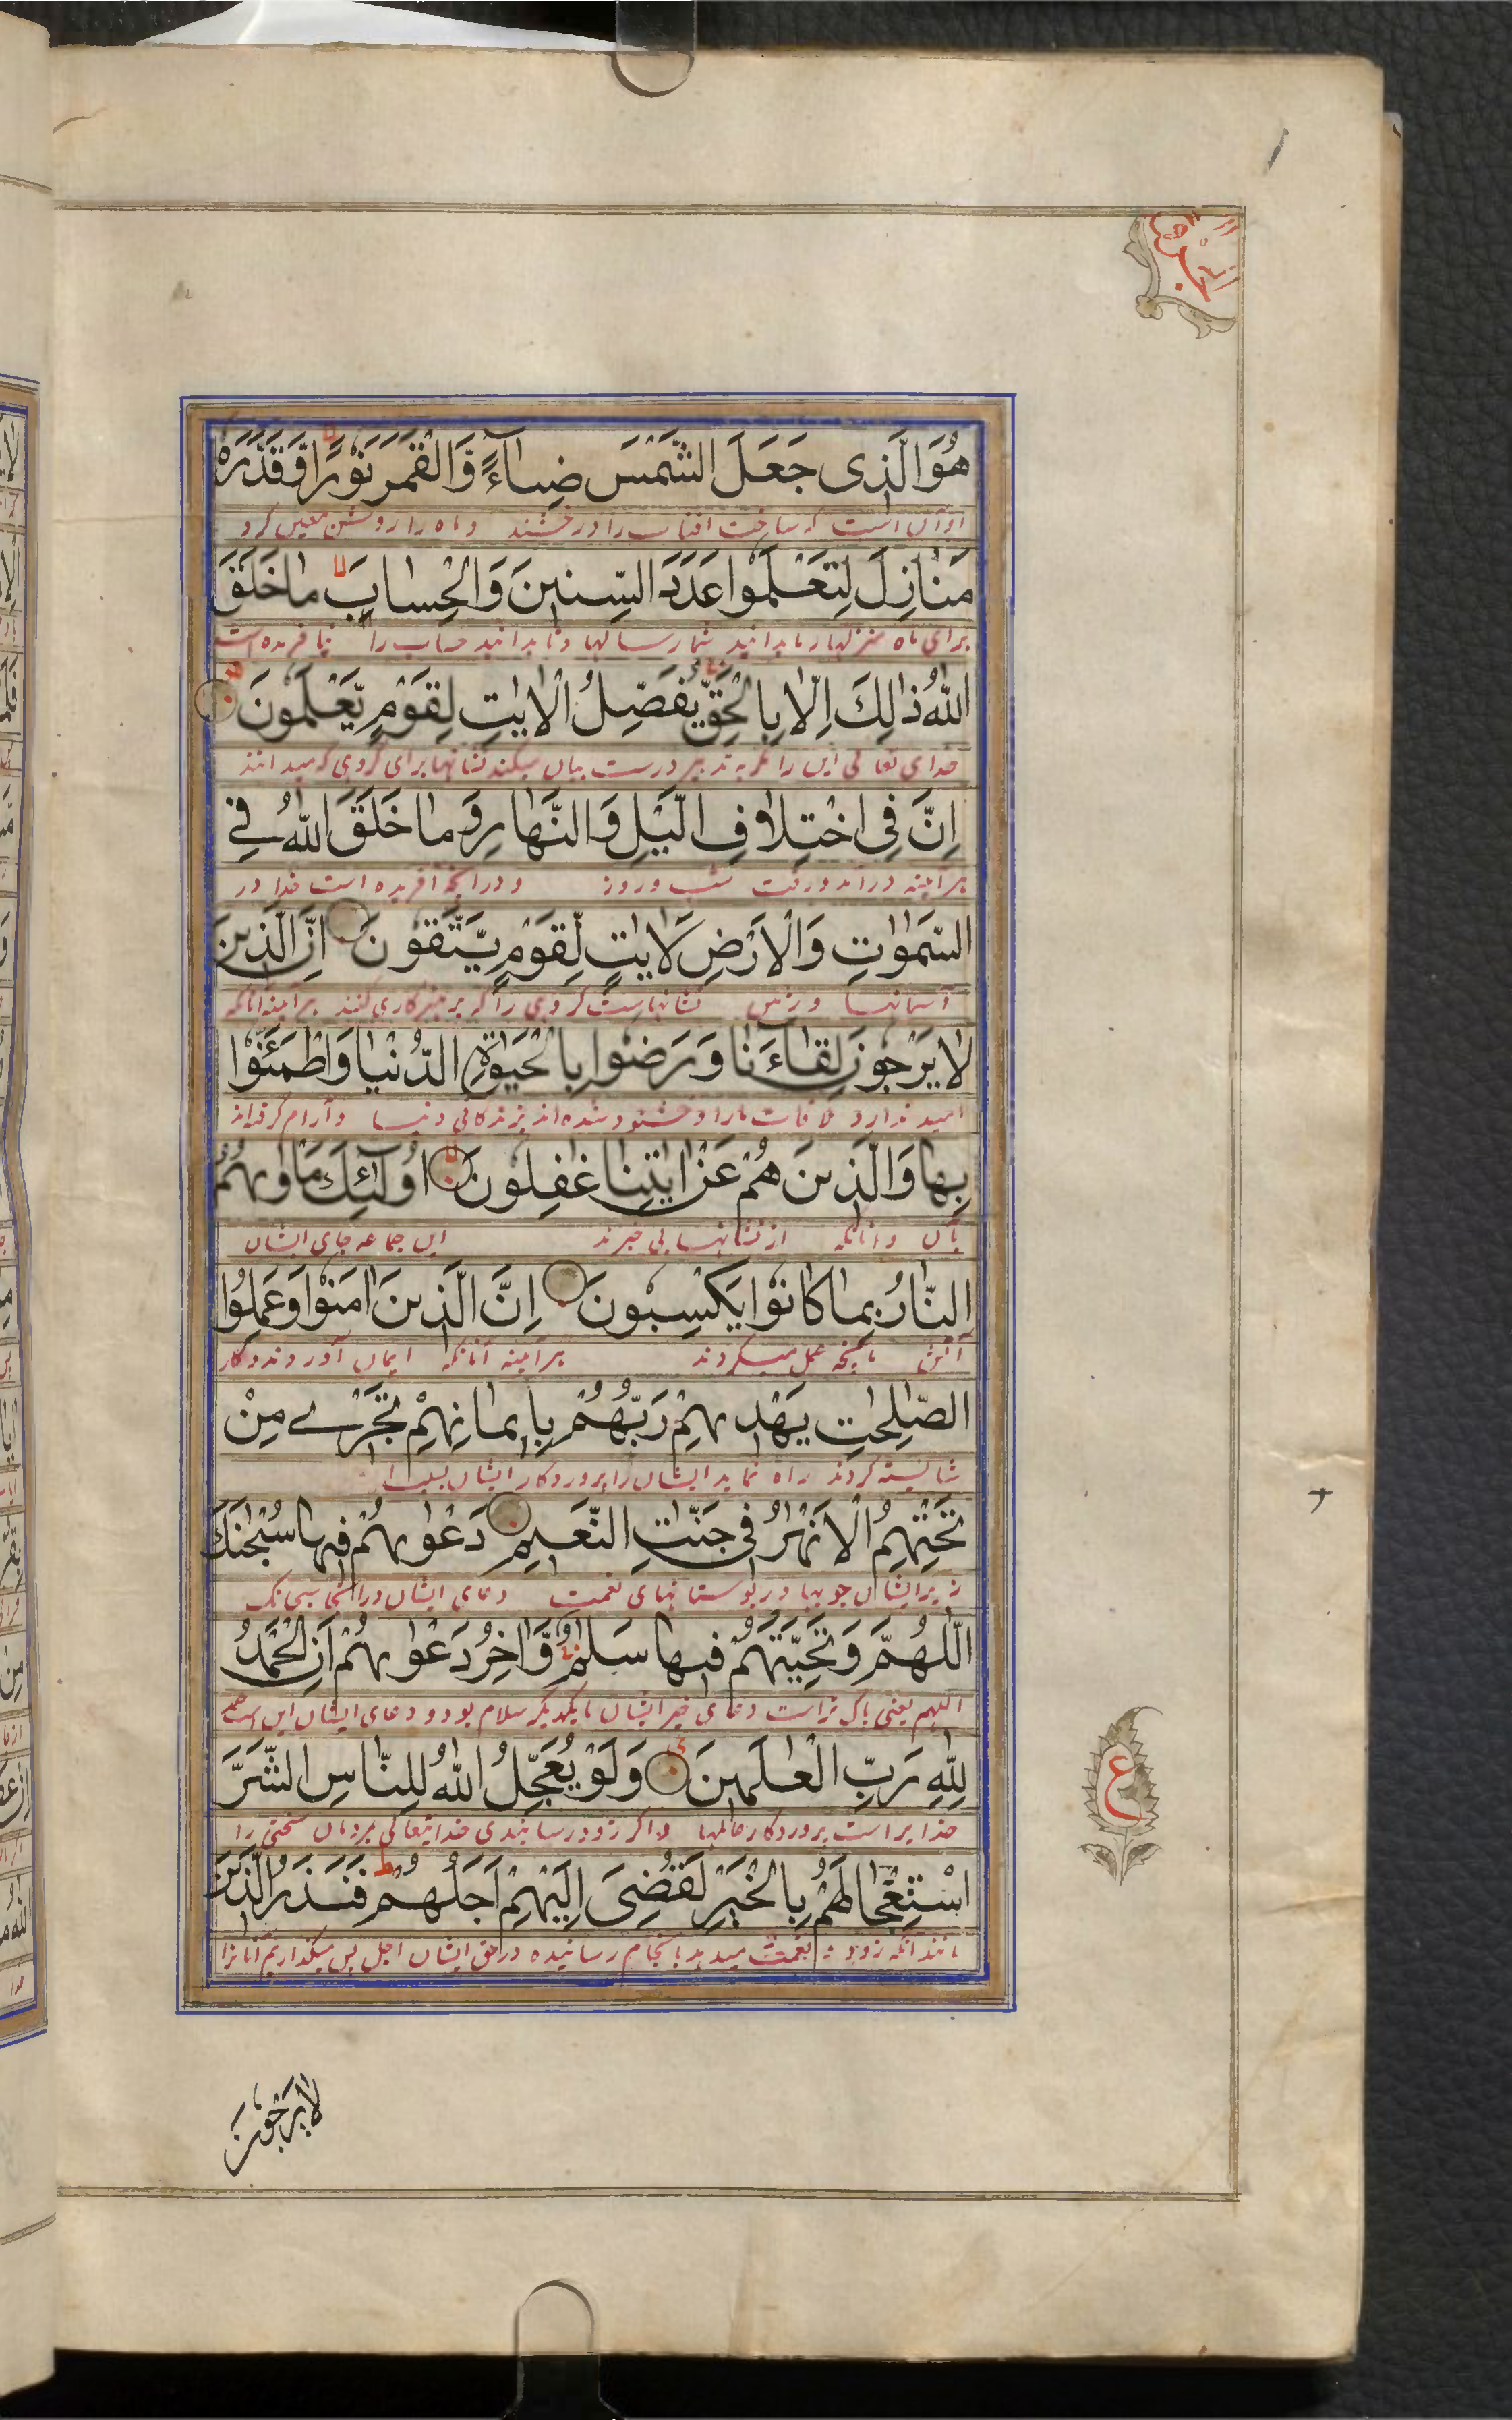 هُوَ الَّذِى جَعَلَ الشَّمْسَ ضِيَآءً وَّالْقَمَرَ نُوْرًا وَّقَدَّرَهٗ
او آن است که ساخت افتاب را درخشنده و ماه را روشن معین کرد
مَنَازِلَ لِتَعْلَمُوْا عَدَدَ السِّنِيْنَ وَالْحِسَابَ مَا خَلَقَ
برای ماه منزلها تا بدانید شمار سالها و تا بدانید حساب را نیافریده است
اللّٰهُ ذٰلِكَ اِلَّا بِالْحَقِّ يُفَصِّلُ الْاٰيٰتِ لِقَوْمٍ يَّعْلَمُوْنَ
خدای تعالی این را مگر به تدبیر درست بیان میکند نشانها برای گروهی که میدانند
اِنَّ فِى اخْتِلَافِ الَّيْلِ وَالنَّهَارِ وَمَا خَلَقَ اللّٰهُ فِے
هر آیینه در آمد و رفت شب و روز و در آنچه آفریده است خدا در
السَّمٰوٰتِ وَالْاَرْضِ لَاٰيٰتٍ لِّقَوْمٍ يَّتَّقُوْنَ اِنَّ الَّذِيْنَ
آسمانها و زمین نشانهاست گروهی را که پرهیزکاری کنند هر آیینه آنانکه
لَا يَرْجُوْنَ لِقَآءَنَا وَرَضُوْا بِالْحَيٰوةِ الدُّنْيَا وَاطْمَئَنُّوْا
امید ندارند ملاقات ما را و خشنود شده اند بزندگانی دنیا و آرام گرفته اند
بِهَا وَالَّذِيْنَ هُمْ عَنْ اٰيٰتِنَا غٰفِلُوْنَ اُولٰٓئِكَ مَاْوٰىهُمُ
بآن و آنانکه از نشانهای ما بی خبرند این جماعه جای ایشان
النَّارُ بِمَا كَانُوْا يَكْسِبُوْنَ اِنَّ الَّذِيْنَ اٰمَنُوْا وَعَمِلُوا
آتش بآنچه عمل میکردند هر آیینه آنانکه ایمان آوردند و کار
الصّٰلِحٰتِ يَهْدِيْهِمْ رَبُّهُمْ بِاِيْمَانِهِمْ تَجْرِے مِنْ
شایسته کردند راه نماید ایشان را پروردگار ایشان بسبب
تَحْتِهِمُ الْاَنْهٰرُ فِى جَنّٰتِ النَّعِيْمِ دَعْوٰىهُمْ فِيْهَا سُبْحٰنَكَ
زیر ایشان جویها در بوستانهای نعمت دعای ایشان در آنجا سبحانک
اللّٰهُمَّ وَتَحِيَّتُهُمْ فِيْهَا سَلٰمٌ وَّاٰخِرُ دَعْوٰىهُمْ اَنِ الْحَمْدُ
اللهم یعنی پاکی تراست دعای خیر ایشان با یکدیگر سلام بود و دعای ایشان این است
لِلّٰهِ رَبِّ الْعٰلَمِيْنَ وَلَوْ يُعَجِّلُ اللّٰهُ لِلنَّاسِ الشَّرَّ
خدایراست پروردگار عالمها و اگر زود رسانیدی خدایتعالی بمردمان سختی را
اسْتِعْجَالَهُمْ بِالْخَيْرِ لَقُضِىَ اِلَيْهِمْ اَجَلُهُمْ فَنَذَرُ الَّذِيْنَ
مانند آنکه زود نعمت میدهد بانجام رسانیده در حق ایشان اجل پس میگذاریم آنانرا
ع
لَا يَرْجُوْنَ